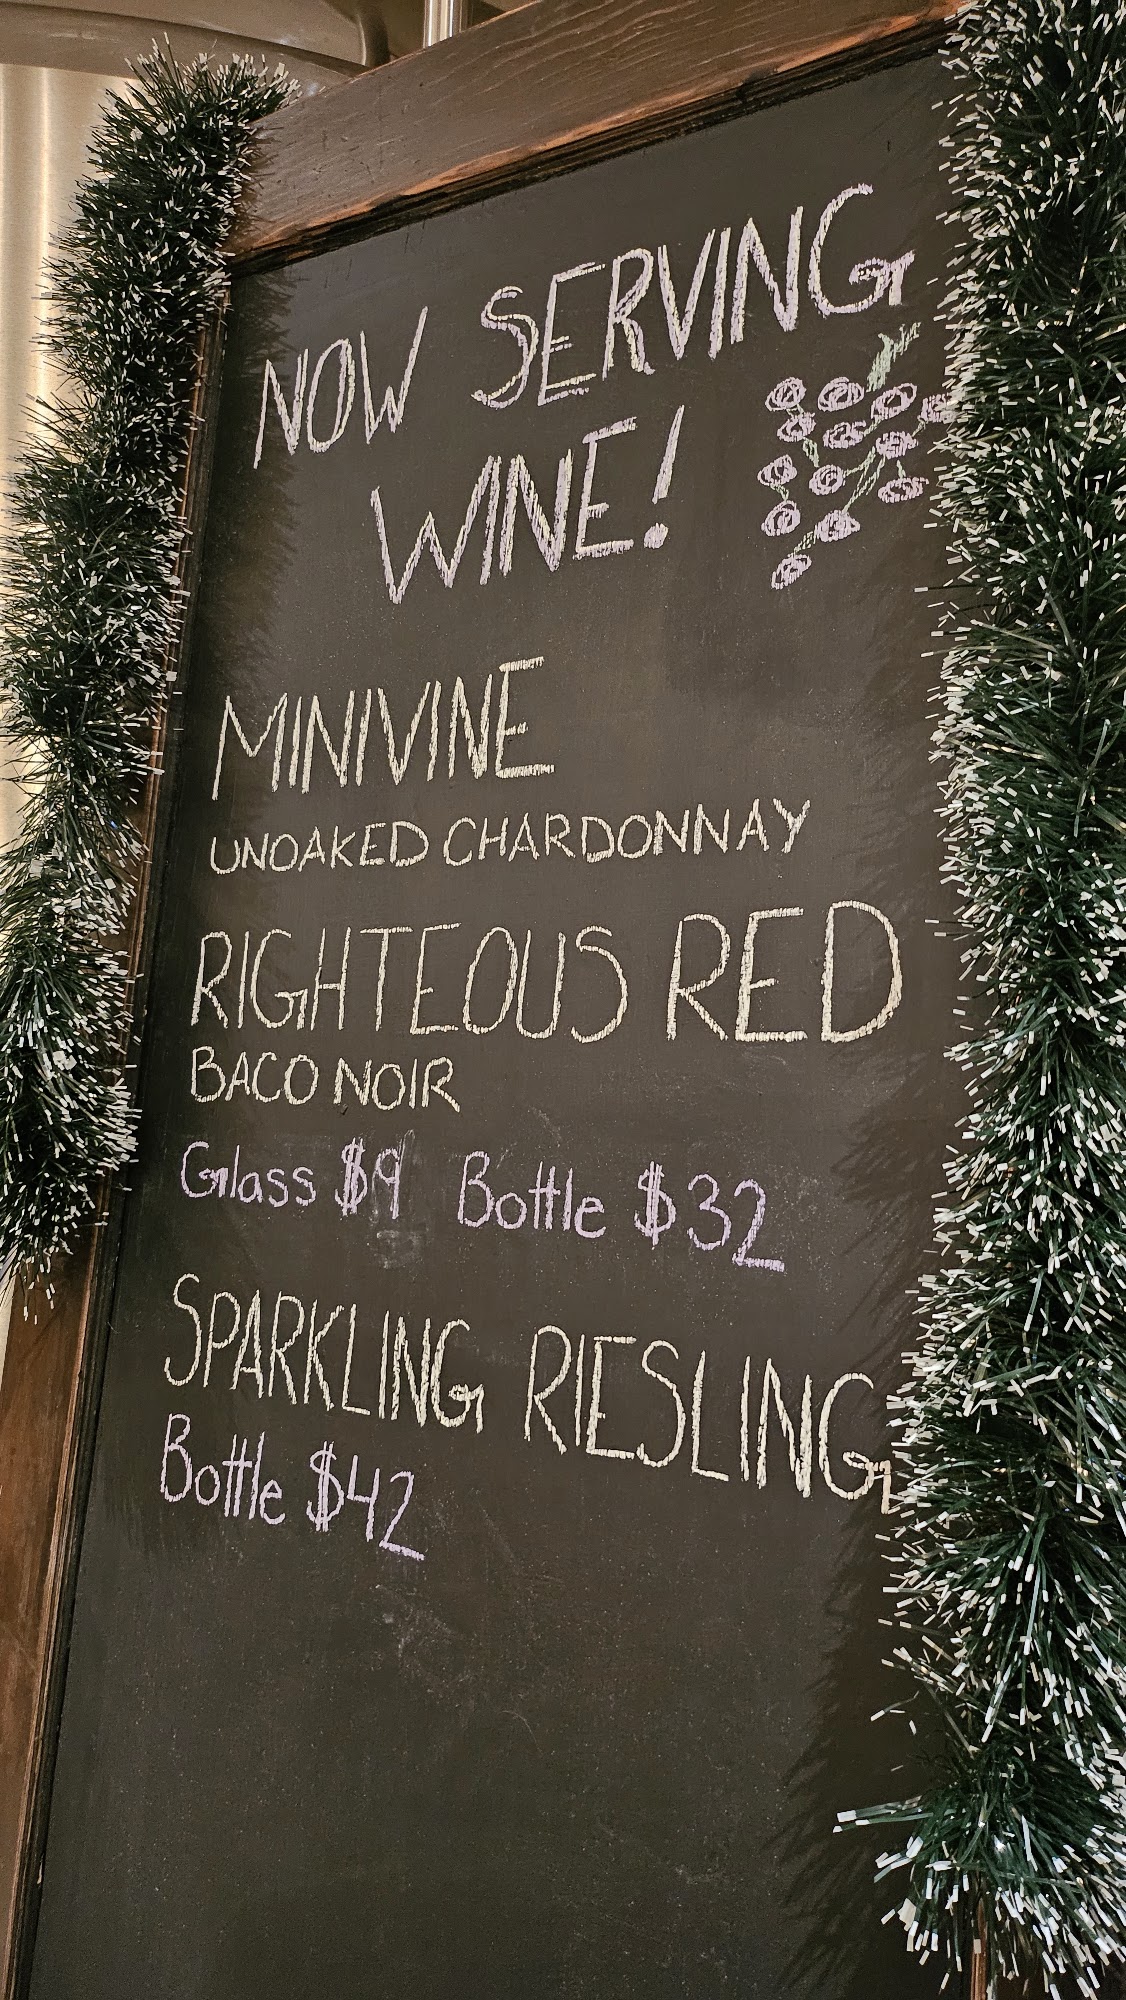 NOW SERVING
WINE!
MINIVINE
UNOAKED CHARDONNAY
RIGHTEOUS RED
BACO NOIR
Glass $9 Bottle $32
SPARKLING RIESLING
Bottle $42